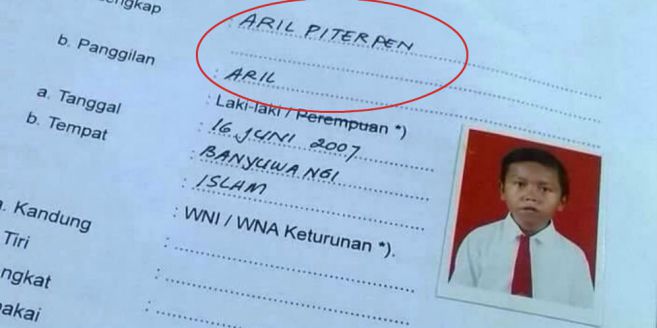 ngkap : ARIL PITERPEN
b. Panggilan : ARIL
: Laki-laki / Perempuan *)
a. Tanggal : 16 JUNI 2007
b. Tempat : BANYUWANGI
: ISLAM
: WNI / WNA Keturunan *).
. Kandung :
Tiri :
ngkat :
akai :